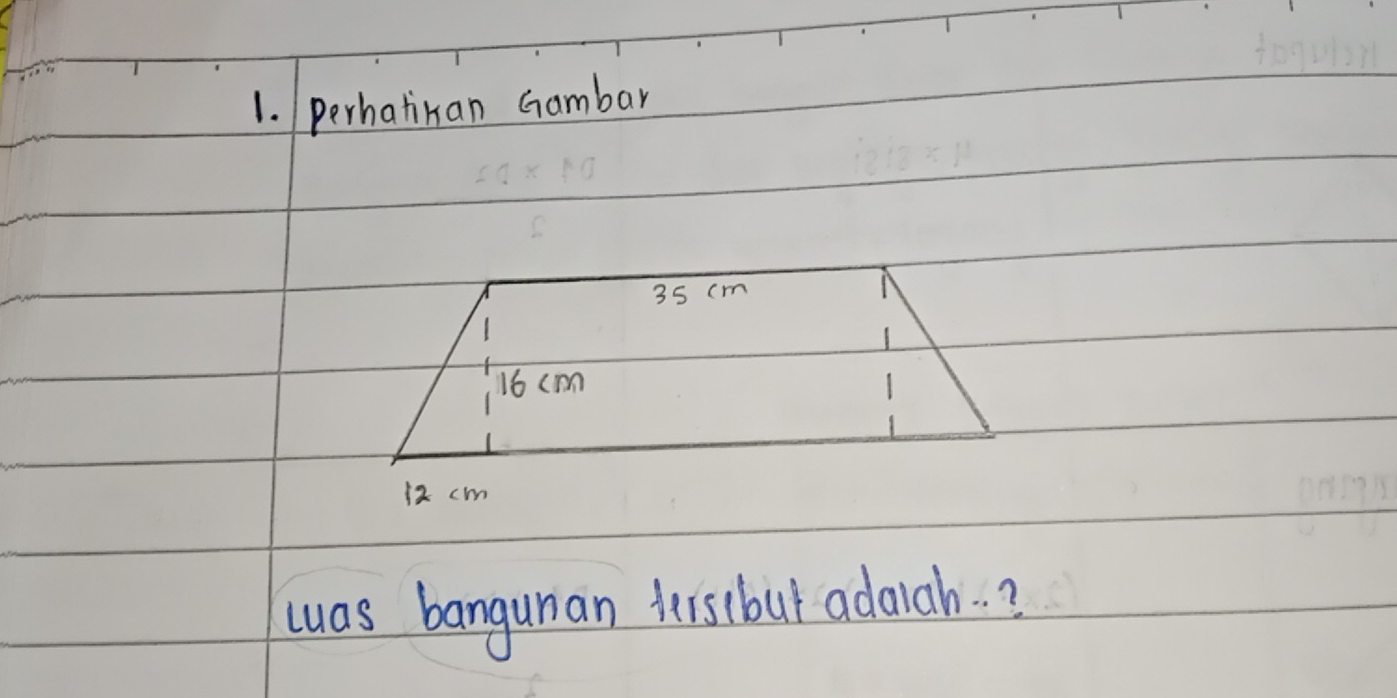 1. Perhatikan Gambar
35 cm
16 cm
12 cm
Luas bangunan tersebut adalah..?